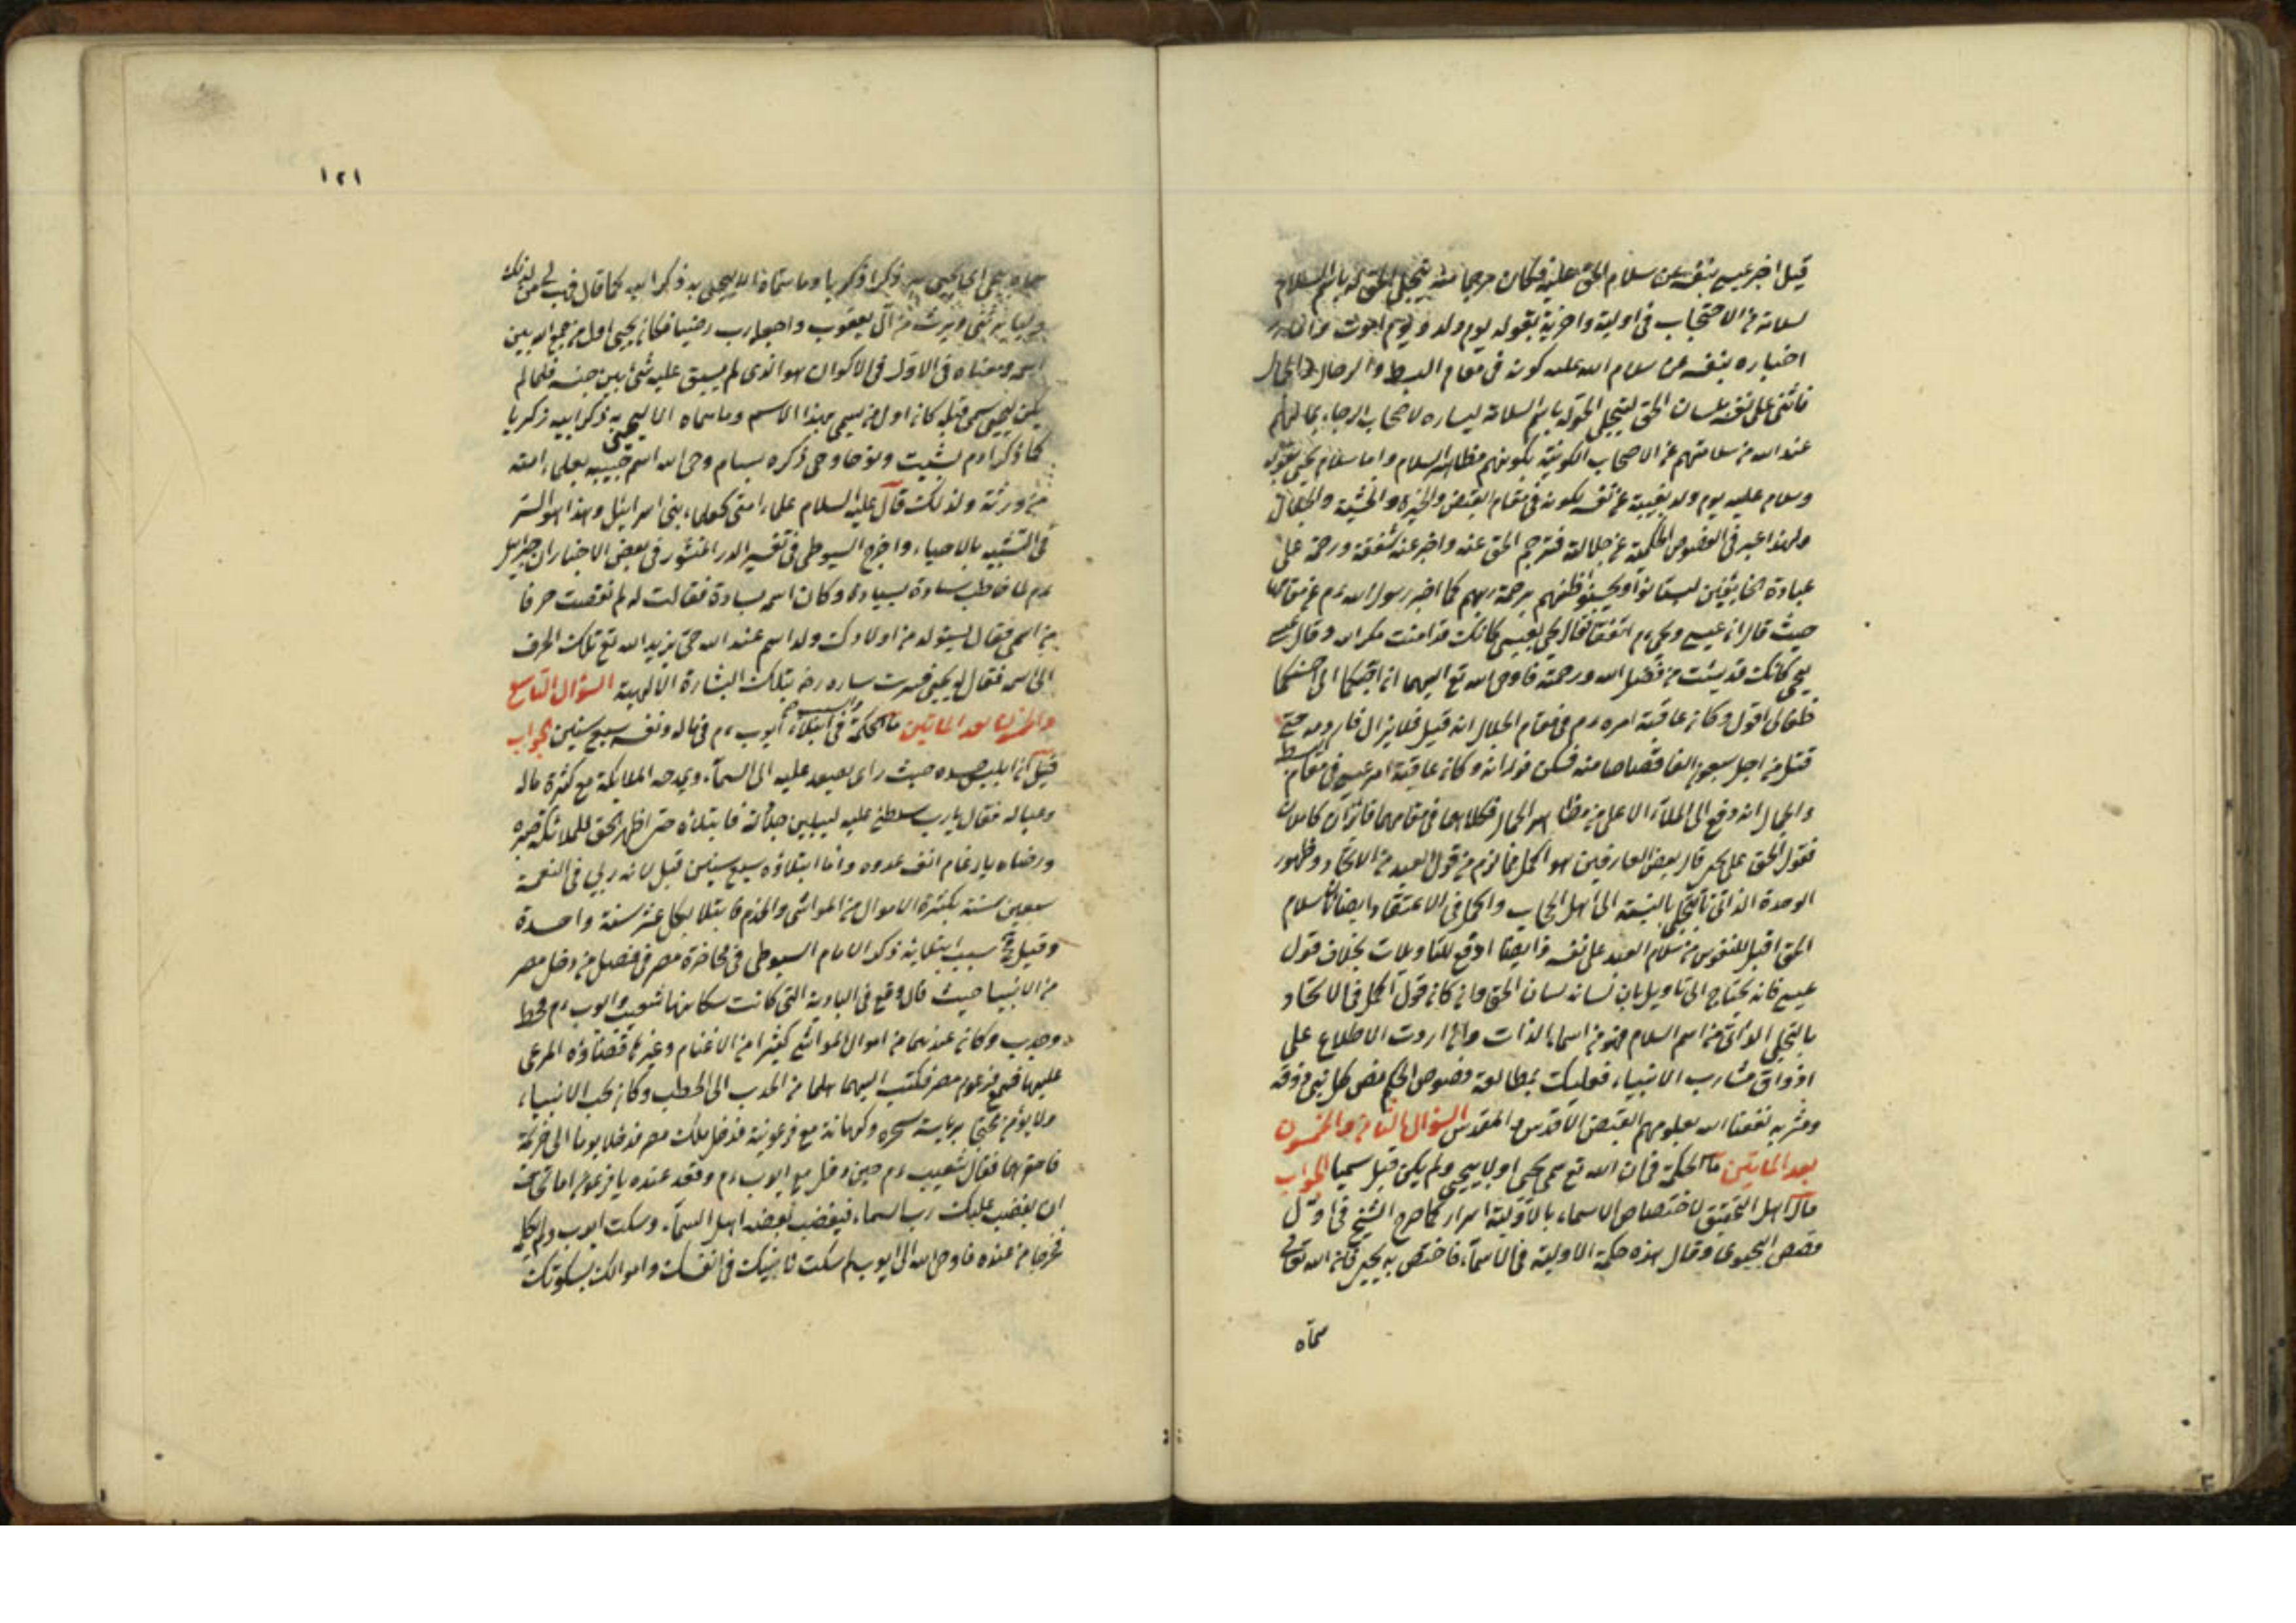 قيل اخبر عيسى بنفسه عن سلام الحق عليه فكان مترجما عنه بتجلى الحق له باسم السلام
لسلامته من الاحتجاب فى اوليته واخريته بقوله يوم ولد ويوم اموت
اخباره بنفسه عن سلام الله عليه كونه فى مقام البسط والرجال
فاثنى على نفسه بلسان الحق لتجلى الحق له باسم السلام
عند الله من سلامتهم عن الاحجاب الكونية بكونهم مظاهر السلام واما سلام يحيى بقوله
وسلام عليه يوم ولد بغيبته عن نفسه بكونه فى مقام القبض والحيرة والخشية والجلال
ولهذا عبر فى الفصوص الحكمية عن جلالة فترجم الحق عنه واخبر عنه شفقة ورحمة على
عباده الخايفين ليستانسوا ويحسنوا ظنهم برحمة ربهم كما اخبر رسول الله عم عن مقامهما
حيث قال ان عيسى ويحيى عم اتفقا فقال يحيى لعيسى كانك قد امنت مكر الله وقال عيسى
ليحيى كانك قد يئست من فضل الله ورحمته فاوحى الله تع اليهما ان احبكما الى احسنكما
ظنا لى اقول وكان عاقبة امره عم فى مقام الجلال انه قتل فلا يزال فار دمه حتى
قتل من اجل سبعون الفا قصاصا منه فسكن فورانه وكان عاقبة امر عيسى فى مقام البسط
والجمال انه رفع الى الملاء الاعلى من مظاهر الجمال فكلاهما فى مقامهما فائزان كاملان
فقول الحق على يحيى قال بعض العارفين هو اكمل مما لزم من قول العبد من الاتحاد وظهور
الوحدة الذاتى بالتجلى بالنسبة الى اهل الحجاب واكمل فى الاعتقاد وايضا سلام
الحق اقبل للنفوس من سلام العبد على نفسه وايضا ارفع للتاويلات بخلاف قول
عيسى فانه يحتاج الى تاويل بان لسانه لسان الحق وان كان قول اكمل فى الاتحاد
بالتجلى الذاتى من اسم السلام فهو من اسماء الذات وان اردت الاطلاع على
اذواق مشارب الانبياء فعليك بمطالعة فصوص الحكم فص كل نبى وذوقه
ومشربه نفعنا الله بعلومهم الفيض الاقدس والمقدس السؤال الثامن والخمسون
بعد المايتين ما الحكمة فى ان الله تع سمى يحيى اولا بيحيى ولم يكن قبل سميا الجواب
قال اهل التحقيق لاختصاص الاسماء بالاولية اسرار كما صرح الشيخ فى اول
فصوص اليحيوى وقال هذه حكمة الاولية فى الاسماء فاختص به يحيى فان الله تعالى
سماه
١٢١
سماه يحيى اى يحيى به ذكر زكريا وما سماه الا ليحيى به ذكر ابيه كما قال فهب لى من لدنك
وليا يرثنى ويرث من آل يعقوب واجعله رب رضيا فكان يحيى اول من جمع الله بين
اسمه ومعناه فى الاول فى الاكوان هو الذى لم يسبق عليه شئ بين جنسه فلما لم
يكن ليحيى سمى قبله كان اول من سمى بهذا الاسم وما سماه الا ليحيى به ذكر ابيه زكريا
كما ذكر ادم بشيث ونوحا وحى ذكره بسام وحى الله اسم حبيبه بعلماء امته
من ورثة ولذلك قال عليه السلام علماء امتى كعلماء بنى اسرائيل وهذا هو السر
فى التشبيه بالاحياء واخرج السيوطى فى تفسير الدر المنثور فى بعض الاخبار ان جبرائيل
عم لما خاطب سارة بسيارة وكان اسمه يسارة فقالت له لم نقصت حرفا
من اسمى فقال ليتولد من اولادك ولد اسم عند الله حى يزيد الله تع تلك الحرف
الى اسمه فقال له يحيى فسرت ساره رضه بتلك البشارة الالهية السؤال التاسع
والخمسون بعد المايتين ما الحكمة فى ابتلاء ايوب عم فى ماله ونفسه سبع سنين الجواب
قيل ان ابليس حسده حيث راى يصعد عليه الى السماء ويمدحه الملايكة مع كثرة ماله
وعياله فقال يارب سلطنى عليه ليبين فابتلاه حتى اظهر الحق للملائكة صبره
ورضاه بارغام انف عدوه واما ابتلاؤه سبع سنين قيل لانه ربى فى النعمة
سبعين سنة بكثرة الاموال من المواشى والخدم فابتلا بكل عشر سنة واحدة
وقيل فى سبب ابتلايه ذكر الامام السيوطى فى محاضرة مصر فى فصل من دخل مصر
من الانبيا حيث قال وقع فى البادية التى كانت سكانها شعيب وايوب عم قحط
وجدب وكان عندهما من اموال المواشى كثيرا من الاغنام وغيرها فضاق المرعى
عليهما فسمع فرعون مصر فكتب اليهما هلما من الجدب الى الخصب وكان يحب الانبياء
ولا يؤمن محتجا برياسة سحره وكهانة مع فرعونية فدخل ملك مصر فدخلا يوما الى
فاحترمهما فقال شعيب عم حين دخل مع ايوب عم وقعد عنده يا فرعون اما تخاف
ان يغضب عليك رب السماء فيغضب بغضبه اهل السماء وسكت ايوب ولم يتكلم
فخرجا من عنده فاوحى الله الى ايوب لم سكت فى نفسك واموالك بسكوتك